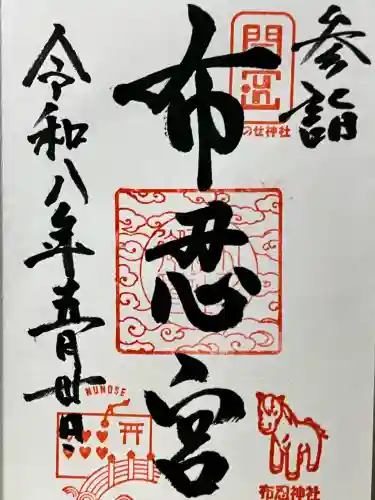 参詣
開運
のせ神社
布忍宮
令和八年五月廿日
NUNOSE
布忍神社